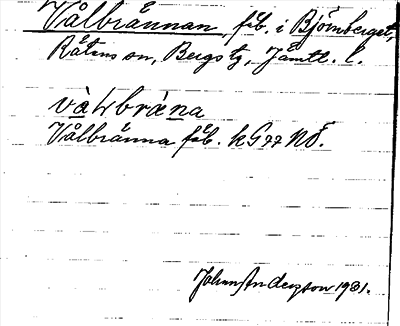 Vålbrännan, fåb. i Björnberget,
Rätans sn, Bergs tg, Jämtl. l.
Vålbränna fåb. k G 77 NÖ.
Johan Anderzson 1931.